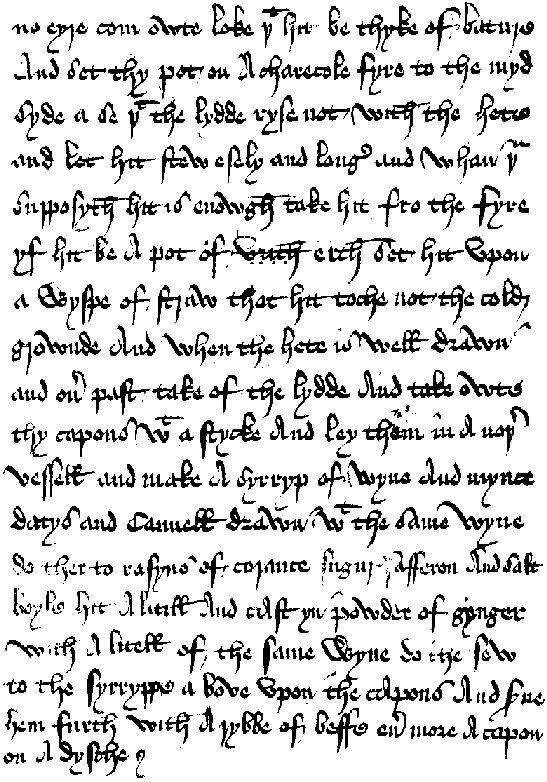 no eyre com owte loke yt hit be thyke of bature
And set thy pot on A charecole fyre to the myd
syde a se yt the lydde ryse not with the hete
and let hit stew esely and long and whan yu
supposyth hit is enowgh take hit fro the fyre
yf hit be A pot of erth set hit upon
a Wyspe of straw that hit toche not the cold
grownde And when the hete is well drawn
and over past take of the lydde And take owte
thy capons wt a stycke And ley them in A nother
vessell and make A syrryp of wyne And mynce
datys and Cannell drawn wt the same wyne
do ther to rasyns of corance sugur safferon And salt
boyle hit A litill And cast yn powder of gynger
with A litell of the same Wyne do the sew
to the syrryppe a bove upon the capons And serve
hem furth with A rybbe of beffe ever more A capon
on A dysche